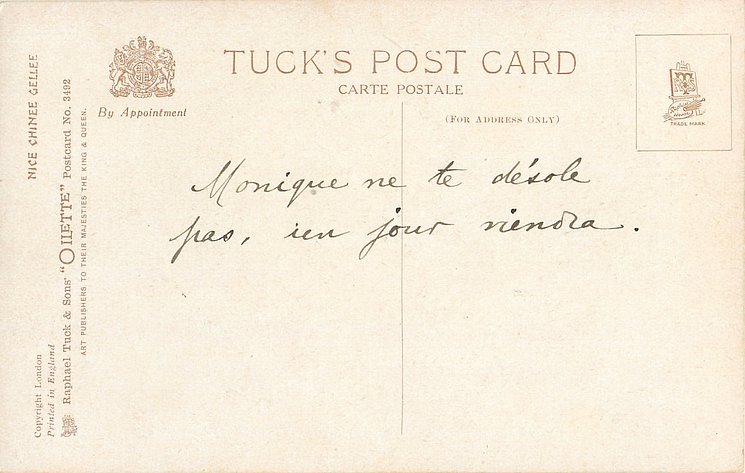 TUCK'S POST CARD
CARTE POSTALE
By Appointment
(FOR ADDRESS ONLY)
TRADE MARK
Monique ne te désole
pas, un jour viendra.
NICE CHINEE GELLEE
Copyright London
Printed in England
Raphael Tuck & Sons' "OILETTE" Postcard No. 3492
ART PUBLISHERS TO THEIR MAJESTIES THE KING & QUEEN.